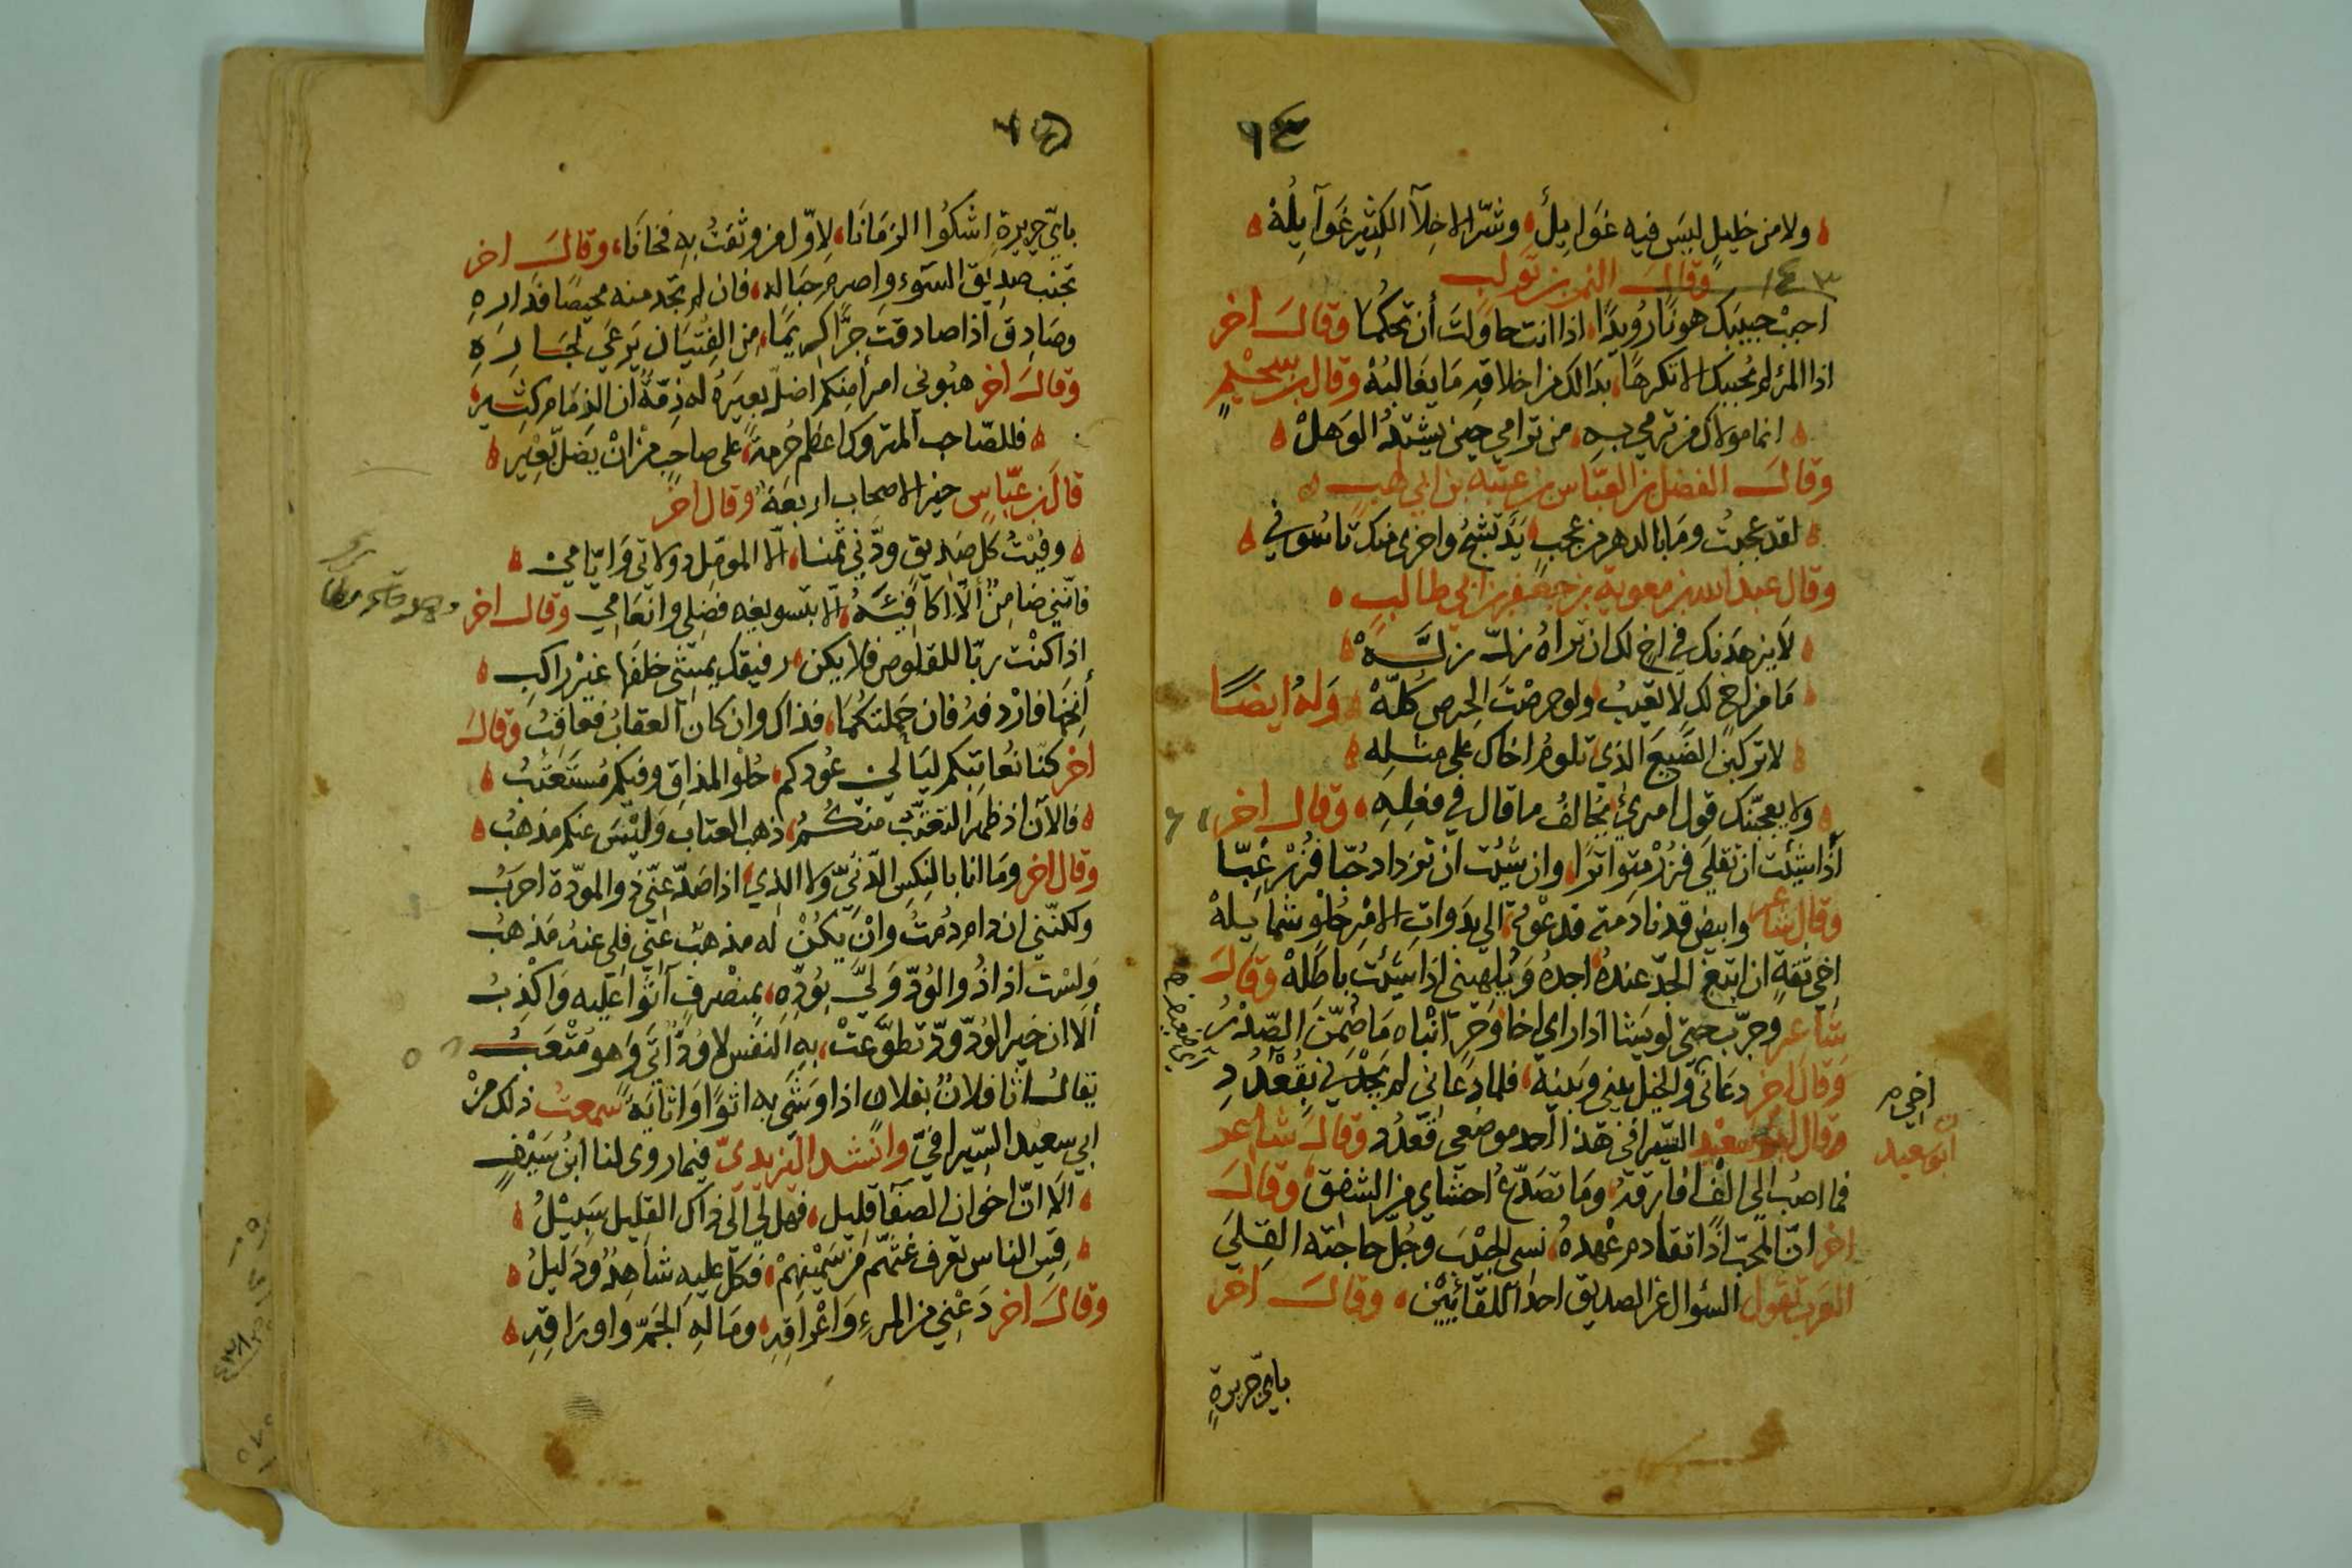 ٩٤
ولا من خليل ليس فيه غوايل وشر الاخلا الكثير غوايله
وقال النمر بن تولب
احبب حبيبك هونا رويدا اذا انت حاولت أن تحكما وقال اخر
اذا المرء لم يحببك الا تكرها بدا لك من اخلاقه ما يغالبه وقال بن سحيم
انما مولاك من ترمي به من ترامي حين يشتد الوهل
وقال الفضل بن العباس بن عتبه بن ابي لهب
لقد عجبت وما بالدهر من عجب يد تشج واخرى منك تاسوني
وقال عبد الله بن معوية بن جعفر بن ابي طالب
لا يزهدنك في اخ لك ان تراه زل زله
ما من اخ لك لا يعيب ولو حرصت الحرص كله وله ايضا
لا تركبن الصنيع الذي تلوم اخاك على مثله
ولا يعجبنك قول امرئ يخالف ما قال في فعله وقال اخر
أذا شيئت ان تقلى فزر متواترا وان شيئت ان تزداد حبا فزر غبا
وقال شاعر وابيض قد نادمته فدعوته الى بدوات الامر حلو شمايله
اخي ثقة ان ابتغ الجد عنده اجده ويلهيني اذا شيئت باطله وقال
شاعر وجرب حتى لو يشا اذا راى اخا وحر انباه ما ضمن الصدر
وقال اخر دعاني والخيل بيني وبينه فلما دعاني لم يجدني بقعدد
وقال ابو سعيد السيرافي هذا احد موضعي قعدد وقال شاعر
فما اصب الى الف افارقه وما تصدع احشاي من الشفق وقال
اخر ان المحب اذا تقادم عهده نسي الحبيب وجل حاجته القلى
العرب تقول السؤال عن الصديق احد اللقائين وقال اخر
باي جريرة
اخي
ابو سعيد
٩٥
باي جريرة اشكوا الزمانا لاول من وثقت به فخانا وقال اخر
تجنب صديق السوء واصرم حباله فان لم تجد منه محيصا فداره
وصادق اذا صادقت حرا كريما من الفتيان يرعى لجاره
وقال اخر هبوني امرأ منكم اضل بعيره له ذمة ان الذمام كثير
فللصاحب المتروك اعظم حرمة على صاحب من ان يضل بعير
قال بن عباس خير الاصحاب اربعة وقال اخر
وفيت كل صديق ودني ثمنا الا المومل دولاتي وايامي
فانني ضامن ألا اكافيه الا بتسويغه فضلي وانعامي وقال اخر
اذا كنت ربا للقلوص فلا يكن رفيقك يمشي خلفها غير راكب
أنخها فاردفه فان حملتكما فذاك وان كان العقاب فعاقب وقال
اخر كنا نعاتبكم ليالي عودكم حلو المذاق وفيكم مستعتب
فالآن اذ ظهر التعتب منكم ذهب العتاب وليس عنكم مذهب
وقال اخر وما انا بالنكس الدني ولا الذي اذا صد عني ذو المودة احرب
ولكنني ان دام دمت وان يكن له مذهب عني فلي عنه مذهب
ولست اذا ذو الود ولى بوده بمنصرف آثوا عليه واكذب
ألا ان خير الود ود تطوعت به النفس لا ود أتى وهو متعب
يقال اثا فلان بفلان اذا وشى به اثوا واثاية سمعت ذلك من
ابي سعيد السيرافي وانشد اليزيدي فيما روى لنا ابن سيف
الا ان اخوان الصفا قليل فهل لي الى ذاك القليل سبيل
قس الناس تعرف غثهم من سمينهم فكل عليه شاهد ودليل
وقال اخر دعني من المرء واعراقه وماله الجم واوراقه